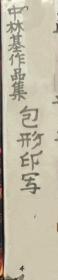 中林基作品集
包形印写